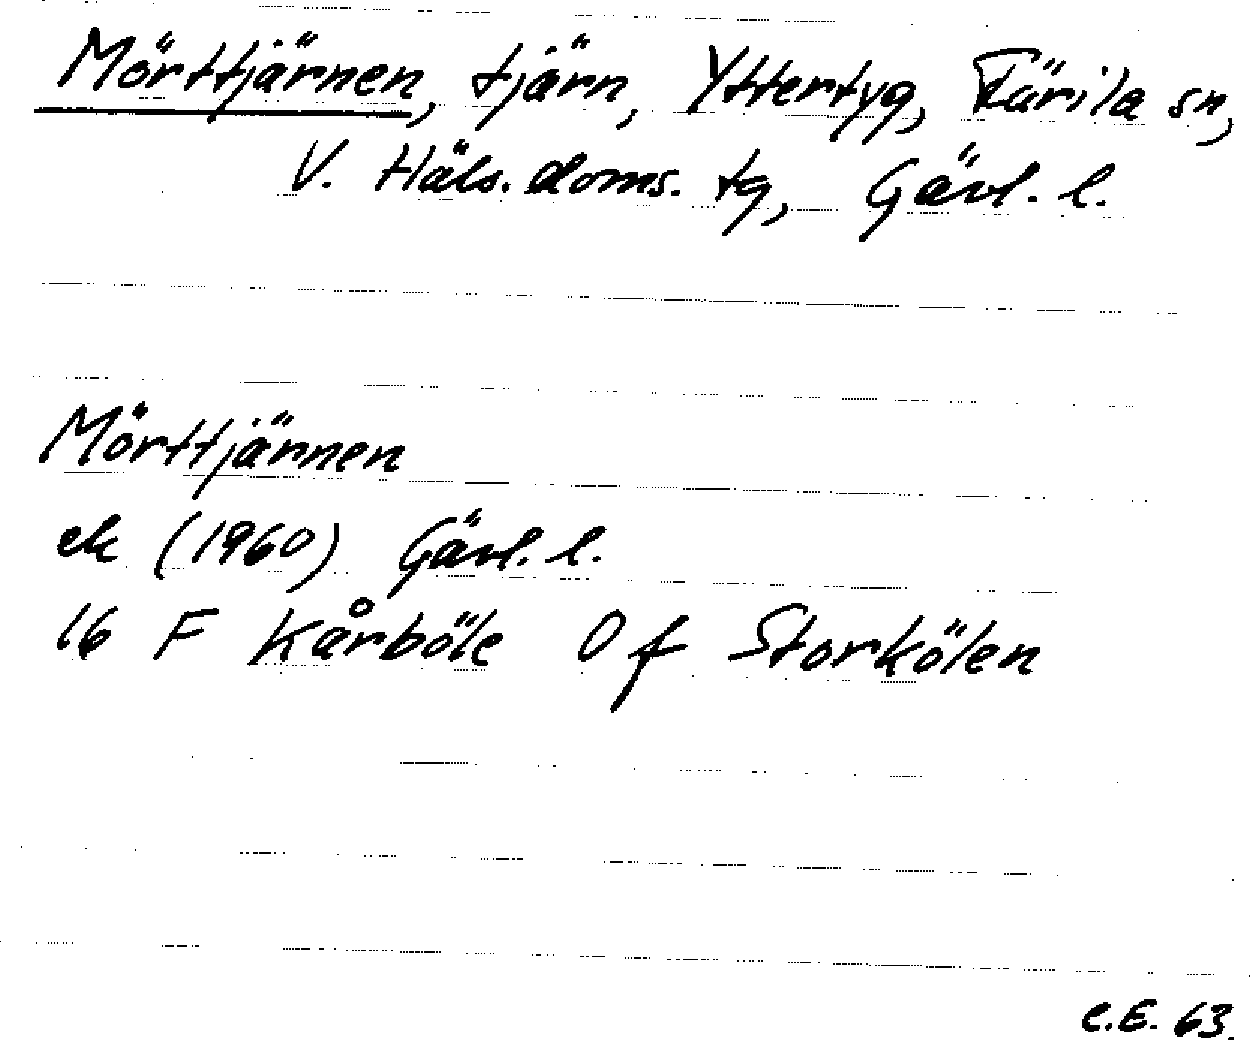 Mörttjärnen, tjärn, Yttertyg, Färila sn,
V. Häls. doms. tg, Gävl. l.
Mörttjärnen
ek (1960) Gävl. l.
16 F Kårböle 0 f Storkölen
C.E. 63.